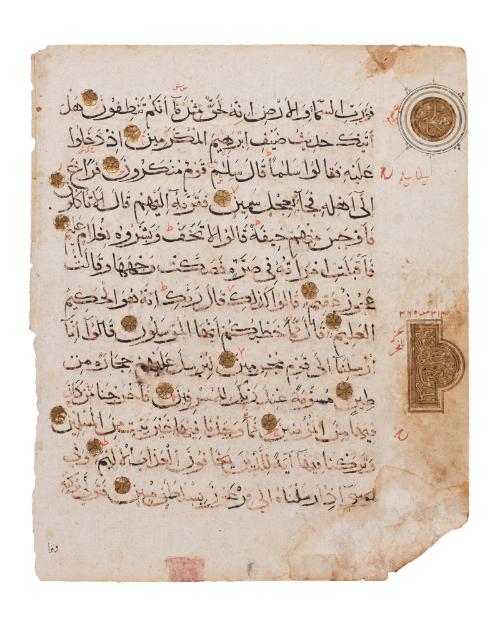 فورب السماء والارض انه لحق مثل ما انكم تنطقون هل
اتيك حديث ضيف ابرهيم المكرمين اذ دخلوا
عليه فقالوا سلما قال سلم قوم منكرون فراغ
الى اهله فجا بعجل سمين فقربه اليهم قال الا تاكلون
فاوجس منهم خيفة قالوا لا تخف وبشروه بغلام عليم
فاقبلت امراته في صرة فصكت وجهها وقالت
عجوز عقيم قالوا كذلك قال ربك انه هو الحكيم
العليم قال فما خطبكم ايها المرسلون قالوا انا
ارسلنا الى قوم مجرمين لنرسل عليهم حجارة من
طين مسومة عند ربك للمسرفين فاخرجنا من كان
فيها من المؤمنين فما وجدنا فيها غير بيت من المسلمين
وتركنا فيها اية للذين يخافون العذاب الاليم وفي
موسى اذ ارسلناه الى فرعون بسلطن مبين فتولى بركنه